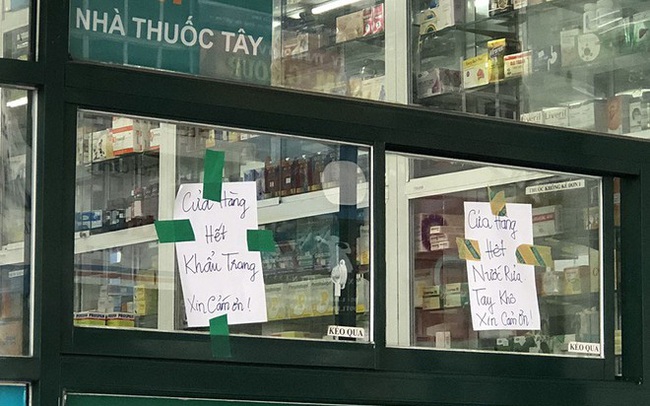 NHÀ THUỐC TÂY
THUỐC KHÔNG KÊ ĐƠN 1
Cửa Hàng
Hết
Khẩu Trang
Xin Cảm ơn!
Cửa Hàng
Hết
Nước Rửa
Tay Khô
Xin Cảm ơn!
KÉO QUA
KÉO QUA